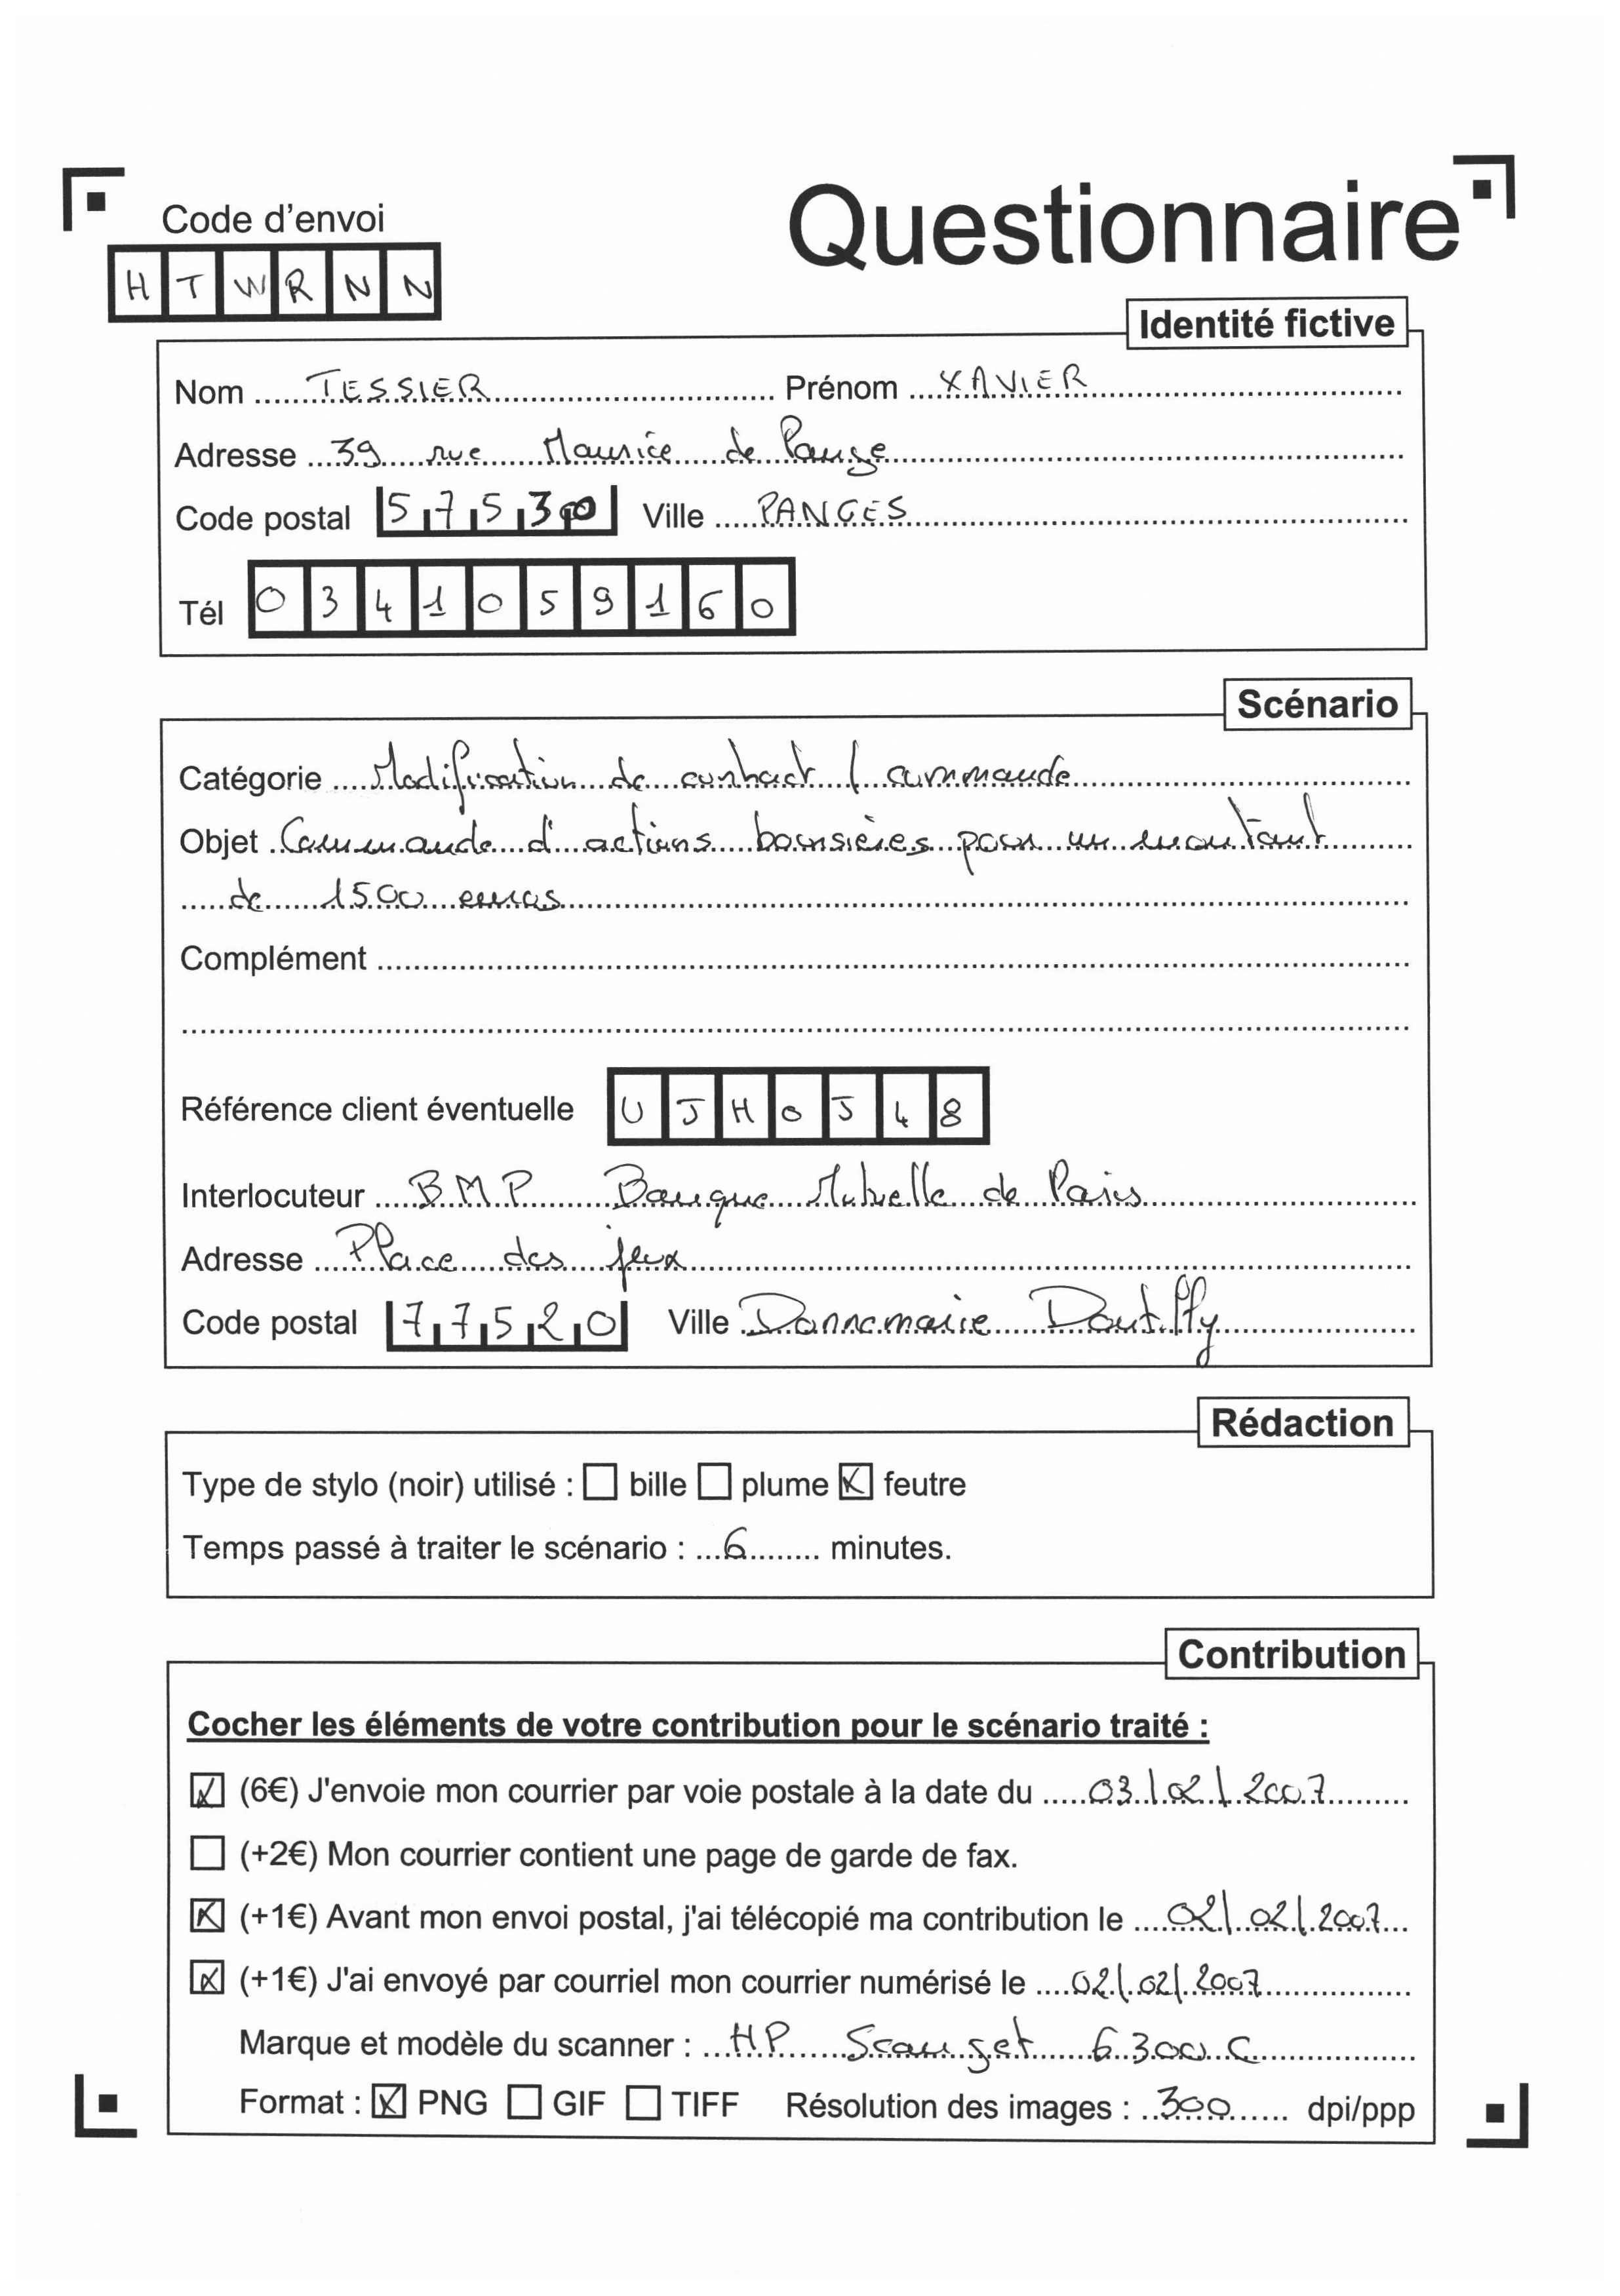 Questionnaire
Code d'envoi
H T W R N N
Identité fictive
Nom TESSIER Prénom XAVIER
Adresse 39 rue Maurice de Pange
Code postal 57530 Ville PANGES
Tél 0341059160
Scénario
Catégorie Modification de contract / commande
Objet Commande d'actions boursières pour un montant
de 1500 euros
Complément
Référence client éventuelle UJHOJ48
Interlocuteur BMP Banque Mutuelle de Paris
Adresse Place des jeux
Code postal 77520 Ville Donnemarie Dontilly
Rédaction
Type de stylo (noir) utilisé : bille plume feutre
Temps passé à traiter le scénario : 6 minutes.
Contribution
Cocher les éléments de votre contribution pour le scénario traité :
(6€) J'envoie mon courrier par voie postale à la date du 03/02/2007
(+2€) Mon courrier contient une page de garde de fax.
(+1€) Avant mon envoi postal, j'ai télécopié ma contribution le 02/02/2007
(+1€) J'ai envoyé par courriel mon courrier numérisé le 02/02/2007
Marque et modèle du scanner : HP Scanjet 6300 C
Format : PNG GIF TIFF Résolution des images : 300 dpi/ppp